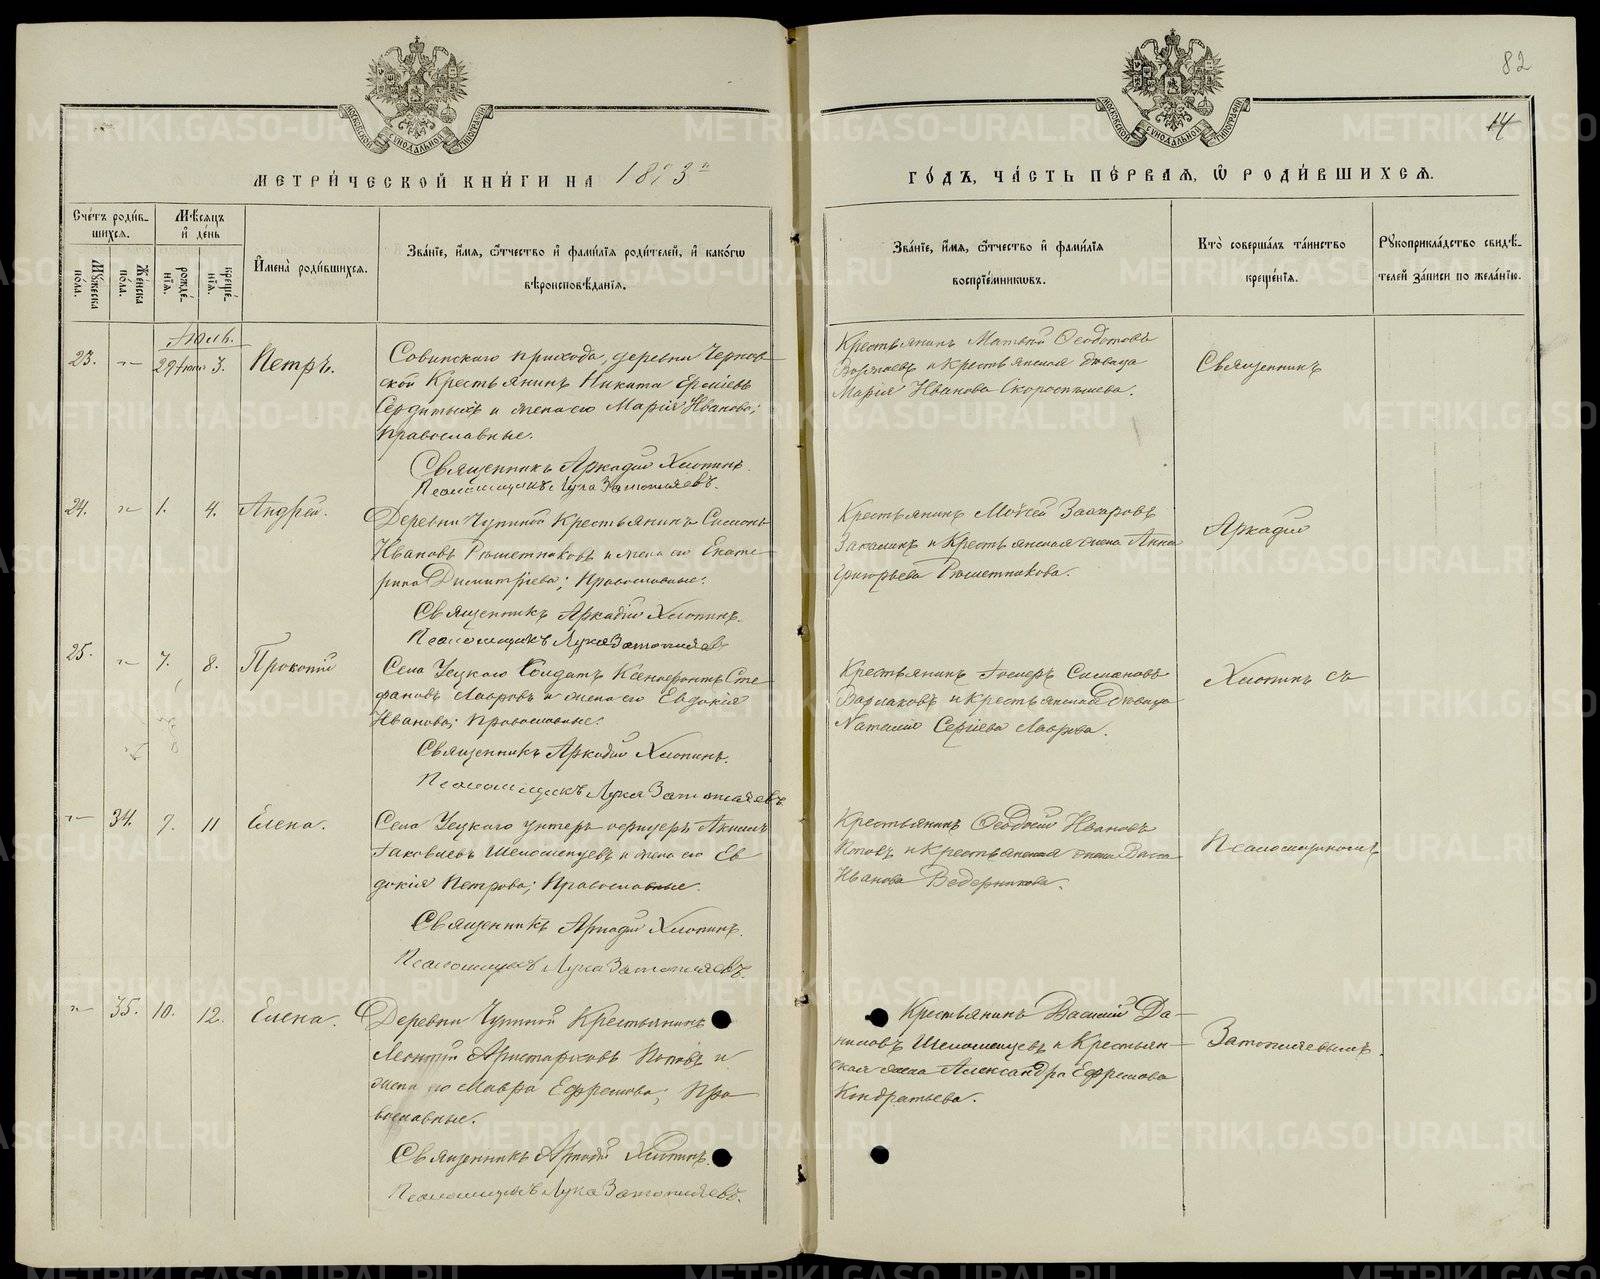 82
14
МОСКОВСКОЙ СѴНОДАЛЬНОЙ ТИПОГРАФІИ
МОСКОВСКОЙ СѴНОДАЛЬНОЙ ТИПОГРАФІИ
МЕТРИ́ЧЕСКОЙ КНИ́ГИ НА 1873й
ГО́ДЪ, ЧА́СТЬ ПЕ́РВАЯ, Ѡ РОДИ́ВШИХСЯ.
Сче́тъ роди́в-
шихся.
Мꙋжеска по́ла.
Же́нска по́ла.
Мѣсяцъ
и̂ де́нь
рожде́-
нїя.
креще́-
нїя.
И̂мена̀ роди́вшихся.
Зва́нїе, и̂мя, ѻ҆́тчество и̂ фами́лїя роди́телей, и̂ како́гѡ
вѣроисповѣ́данїя.
Зва́нїе, и̂мя, ѻ҆́тчество и̂ фами́лїя
воспрїе́мникѡвъ.
Кто̀ соверша́лъ та́инство
креще́нїя.
Рꙋкоприкла́дство свидѣ́-
телей за́писи по жела́нїю.
Іюль.
23. „ 29 Іюня 3. Петръ.
Совинскаго прихода, деревни Чернов-
ской Крестьянинъ Никита
Сердитыхъ и жена его Марія Иванова;
Православные.
Священникъ Аркадій Хлопинъ.
Псаломщикъ Лука Затопляевъ.
Крестьянинъ Матвей Ѳедотовъ
и Крестьянская девица
Марія Иванова Скороспешева.
Священникъ
24. „ 1. 4. Андрей.
Деревни Чупиной Крестьянинъ Симонъ
Ивановъ Решетниковъ и жена его Екате-
рина Димитріева; Православные.
Священникъ Аркадій Хлопинъ.
Псаломщикъ Лука Затопляевъ
Крестьянинъ Мокей Захаровъ
и Крестьянская жена Анна
Григорьева Решетникова.
Аркадій
25. „ 7. 8. Прокопій
Села Уецкого Солдатъ Ксенофонтъ Сте-
фановъ Лавровъ и жена его Евдокія
Иванова; Православные.
Священникъ Аркадій Хлопинъ.
Псаломщикъ Лука Затопляевъ
Крестьянинъ Симановъ
и Крестьянская Девица
Наталія Сергіева Лаврова.
Хлопинъ съ
„ 34. 7. 11 Елена.
Села Уецкого унтеръ офицеръ
Іаковлевъ Шеломенцевъ и жена его Ев-
докія Петрова; Православные.
Священникъ Аркадій Хлопинъ.
Псаломщикъ Лука Затопляевъ.
Крестьянинъ Ѳеодосій Ивановъ
Поповъ и Крестьянская жена Васса
Иванова Ведерникова.
Псаломщикомъ
„ 35. 10. 12. Елена.
Деревни Чупиной Крестьянинъ
Леонтій Аристарховъ Поповъ и
жена его Мавра Ефремова; Пра-
вославные.
Священникъ Аркадій Хлопинъ.
Псаломщикъ Лука Затопляевъ.
Крестьянинъ Василій Да-
ниловъ Шеломенцевъ и Крестьян-
ская жена Александра Ефремова
Кондратьева.
Затопляевымъ.
METRIKI.GASO-URAL.RU